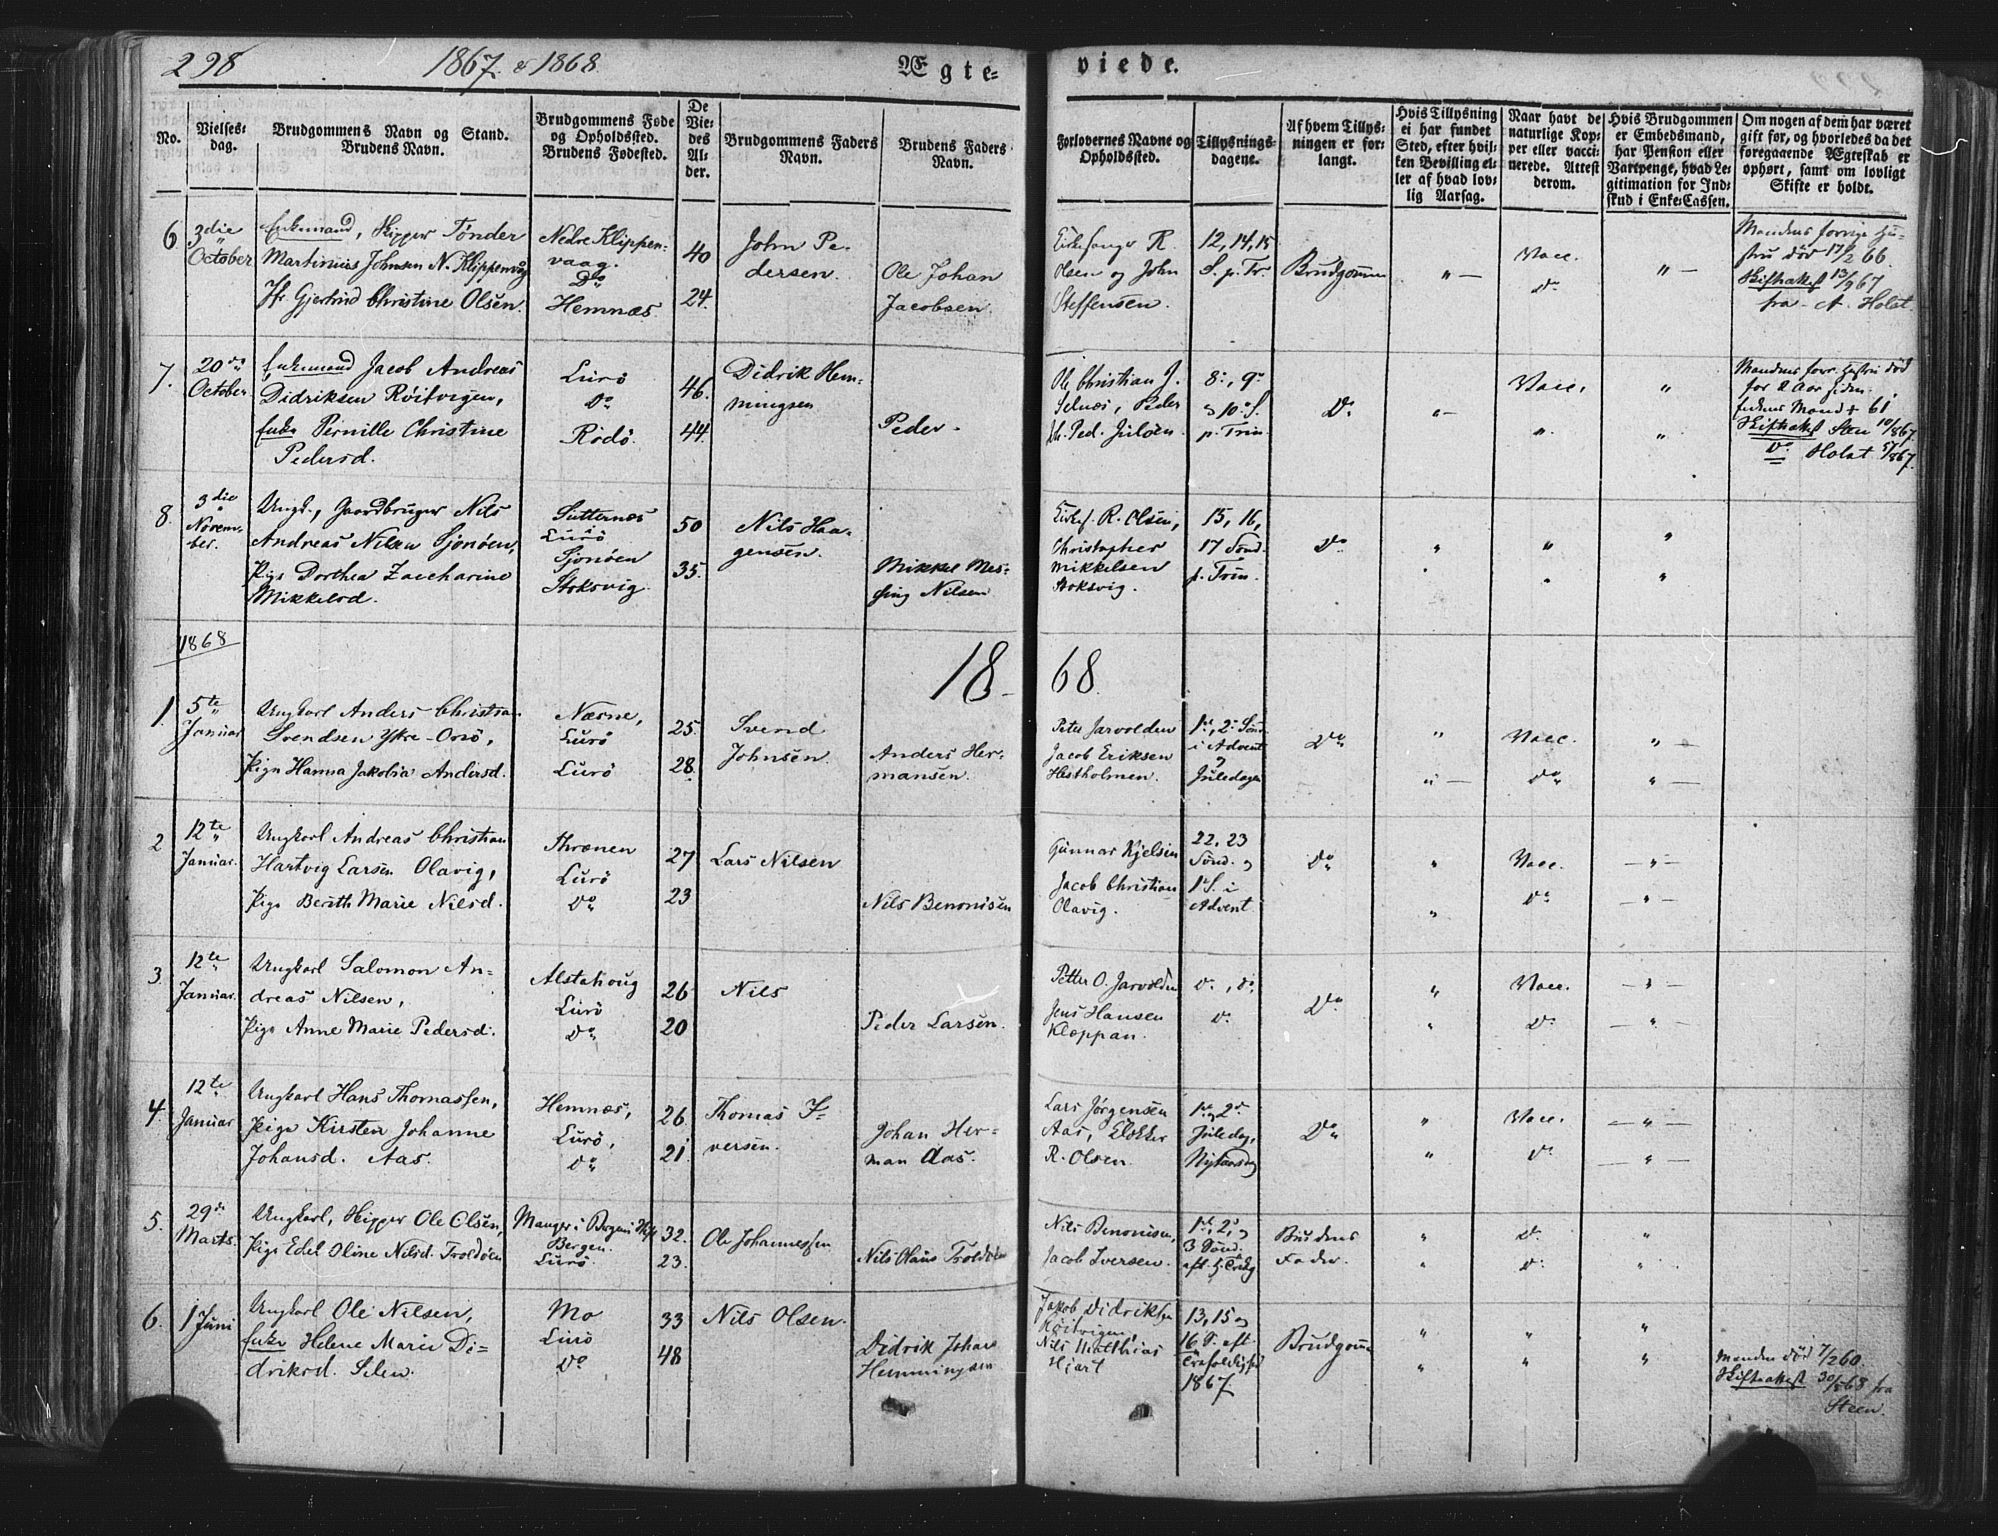 298 1867 & 1868 Ægte= viede.
No.
Vielses=
dag.
Brudgommens Navn og Stand.
Brudens Navn.
Brudgommens Føde
og Opholdssted.
Brudens Fødested.
De
Vie=
des
Al=
der.
Brudgommens Faders
Navn.
Brudens Faders
Navn.
Forlovernes Navne og
Opholdssted.
Tillysnings=
dagene.
Af hvem Tillys=
ningen er for=
langt.
Hvis Tillysning
ei har fundet
Sted, efter hvil=
ken Bevilling el=
ler af hvad lov=
lig Aarsag.
Naar havt de
naturlige Kop=
per eller vacci=
nerede. Attest
derom.
Hvis Brudgommen
er Embedsmand,
har Pension eller
Vartpenge, hvad Le=
gitimation for Ind=
skud i Enke=Cassen.
Om nogen af dem har været
gift før, og hvorledes da det
foregaaende Ægteskab er
ophørt, samt om lovligt
Skifte er holdt.
6
3die
October
Enkemand, Skipper Tønder
Martinius Johnsen N. Klippenvåg
Jfr Gjertrud Christine Olsen.
Nedre Klippen-
vaag.
Do
Hemnæs.
40
24.
John Pe-
dersen.
Ole Johan
Jacobsen.
R.
Olsen og John
Steffensen.
12, 14, 15
S. p. Tr.
Brudgomm
" —
Vacc.
Do
" —
Mandens forrige Hu-
stru død 17/2 66.
Skifteattest 13/9 67
fra A. Holst.
7.
20de
October
Enkemand Jacob Andreas
Didriksen Röitvigen,
Enke Pernille Christine
Pedersd.
Lurö
Do
Rödö.
46.
44.
Didrik Hem-
mingsen
Peder -
Ole Christian J.
Selnæs, Peder
Ped. Julsen.
8:, 9:
& 10: S.
p. Trin.
Do
" -
Vacc.
"
"
"
Mandens forr. Hustru död
for 2 Aar siden.
Enkens Mand + 61.
Skifteattest Steen 10/8 67.
Do Holst 5/8 67.
8.
3die
Novem-
ber.
Ungk., Gaardbruger Nils
Andreas Nilsen Sjonöen,
Pige Dorthea Zaccharine
Mikkelsd.
Sutternæs
Lurö
Sjonöen
Stoksvig.
50
35.
Nils Haa-
gensen.
Mikkel Mes-
sing Nilsen
R. Olsen,
Christopher
Mikkelsen
Stoksvig.
15, 16,
17 Sönd.
p. Trin.
Do
"
"
"
"
1868
18 68.
1.
5te
Januar
Ungkarl Anders Christian
Svendsen Ytre-Onö,
Pige Hanna Jakobia Andersd.
Næsne,
Lurö
Lurö
25.
28.
Svend
Johnsen.
Anders Her-
mansen.
Peter Jarvolden
Jacob Eriksen
Hestholmen.
1ste, 2: Sönd.
i Advent
&
Juledagen
Do
"
" —
Vacc.
Do
" —
" —
2
12te
Januar.
Ungkarl Andreas Christian
Hartvig Larsen Olavig,
Pige Berith Marie Nilsd.
Thrænen
Lurö
Do
27
23
Lars Nilsen
Nils Benonisen
Gunnar Kjelsen
Jacob Christian
Olavig.
22, 23
Sönd. &
1: S. i
Advent
Do
"
"
Vacc.
Do
— " —
— " —
3
12te
Januar.
Ungkarl Salomon An-
dreas Nilsen,
Pige Anne Marie Pedersd.
Alstahoug
Lurö
Do
26
20
Nils
Peder Larsen.
Petter O. Jarvolden
Jens Hansen
Kloppan.
Do, Do
Do
Do
"
"
Vacc.
Do
— " —
— " —
4.
12te
Januar
Ungkarl Hans Thomassen,
Pige Kirsten Johanne
Johansd. Aas.
Hemnæs,
Lurö,
Do
26
21.
Thomas I-
versen.
Johan Her-
man Aas.
Lars Jörgensen
Aas, Klokker
R. Olsen.
1ste, 2de
Juledag,
Nytaarsdag
Do
"
"
Vacc.
Do
— " —
— " —
5.
29de
Marts.
Ungkarl, Skipper Ole Olsen,
Pige Edel Oline Nilsd. Troldöen
Manger i Bergens Stift
Bergen.
Lurö.
32.
23.
Ole Johannessen
Nils Olaus Troldöen
Nils Benonisen,
Jacob Iversen.
1ste, 2: &
3 Sönd.
Brudens
Fader.
"
"
Do
Do
"
"
6.
1 Juni
Ungkarl Ole Nilsen,
Enke Helene Marie Di=
driksd. Selen.
Mo
Lurö
Do
33
48
Nils Olsen.
Didrik Johan
Hemmingsen
Jakob Didriksen
Röitvigen,
Nils Matthias
Hjart
13, 15 &
16 S. eft.
Trefoldighed
1867
Brudgomm
"
"
"
"
"
"
Manden död 7/2 60.
Skifteattest 30/5 68 fra
Steen.